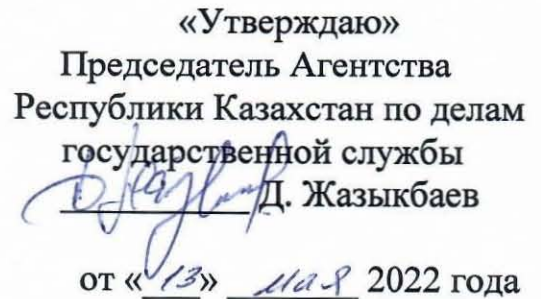 «Утверждаю»
Председатель Агентства
Республики Казахстан по делам
государственной службы
Д. Жазыкбаев
от «13» мая 2022 года